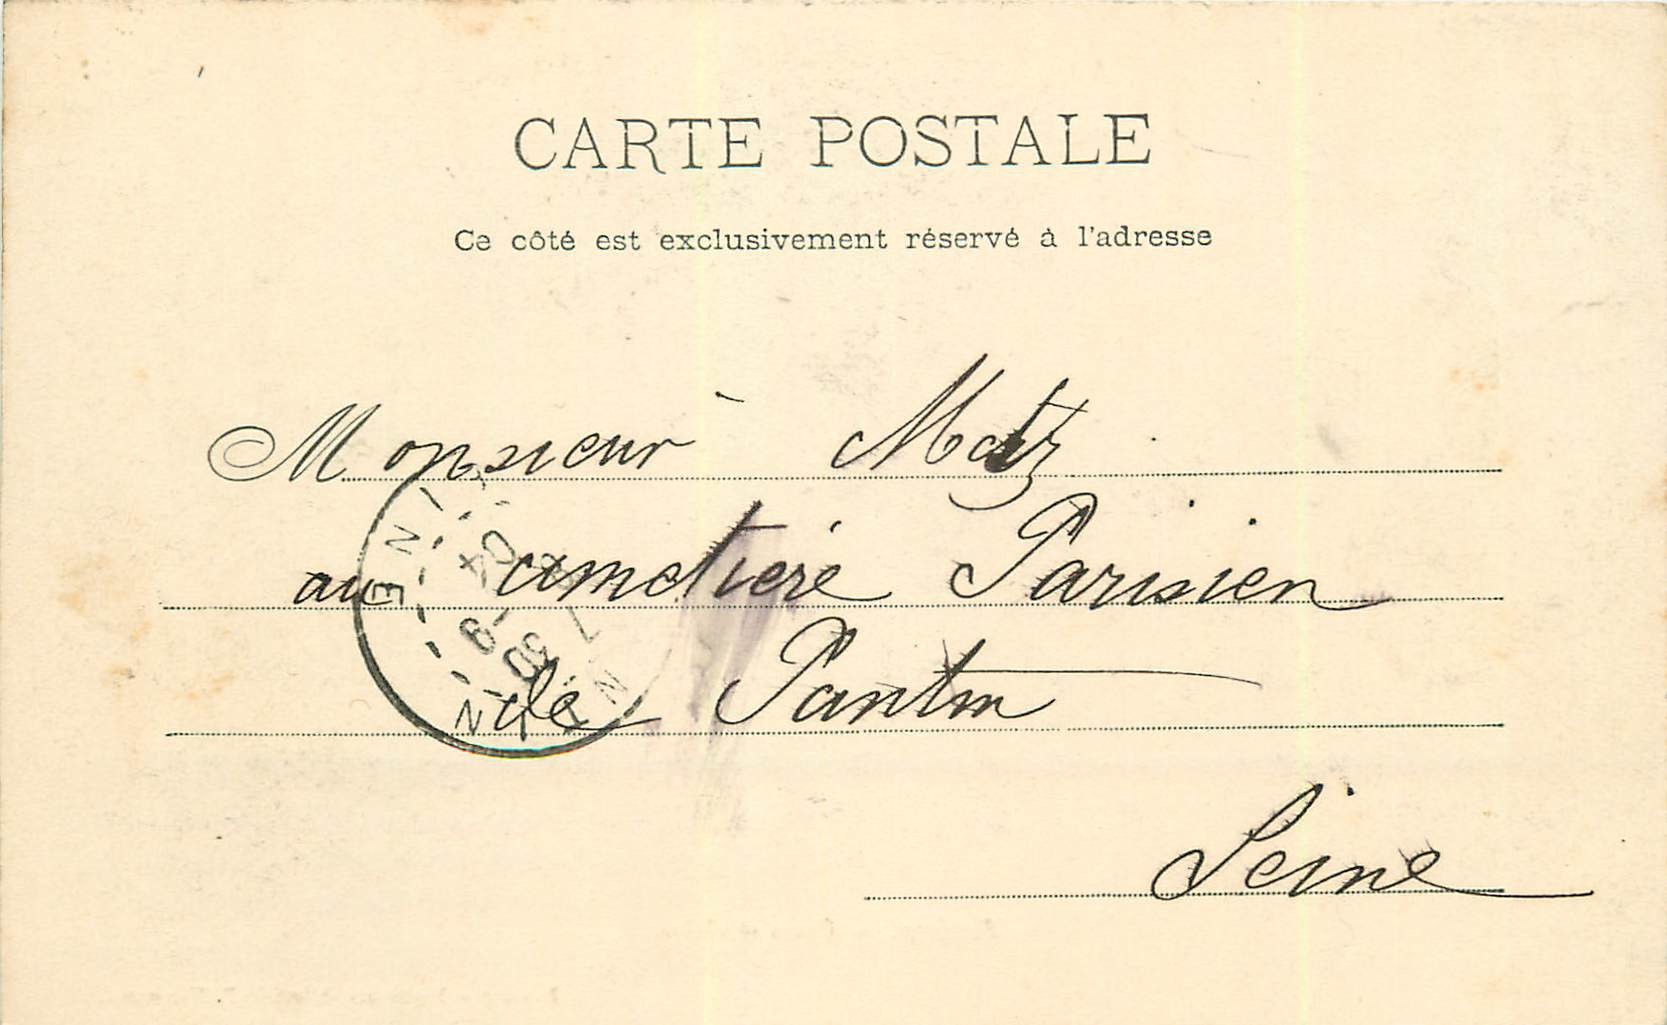 CARTE POSTALE
Ce côté est exclusivement réservé à l'adresse
Monsieur Motz
au cimetière Parisien
de Pantin
Seine